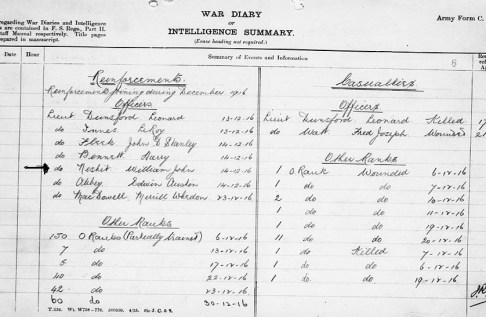 WAR DIARY
or
INTELLIGENCE SUMMARY.
(Erase heading not required.)
Army Form C.
regarding War Diaries and Intelligence
are contained in F. S. Regs., Part II.
Staff Manual respectively. Title pages
prepared in manuscript.
Date Hour Summary of Events and Information
8
Reinforcements.
Reinforcements joining during December 1916
Officers
Lieut Dunsford Leonard 13-12-16
do Innes LeRoy 13-12-16
do John Stanley 14-12-16
do Bennett Harry 14-12-16
do Nesbit William John 14-12-16
do Abbey Edwin Austin 14-12-16
do MacDowell Merrill 23-12-16
Other Ranks
150 O Ranks (Partially trained) 6-12-16
7 do 13-12-16
5 do 17-12-16
40 do 22-12-16
42 do 23-12-16
60 do 30-12-16
Casualties
Officers
Lieut Dunsford Leonard Killed
do Watt Fred Joseph Wounded
Other Ranks
1 O Rank Wounded 6-12-16
1 do do 7-12-16
2 do do 10-12-16
1 do do 11-12-16
1 do do 19-12-16
11 do do 20-12-16
1 do Killed 7-12-16
1 do do 6-12-16
1 do do 19-12-16